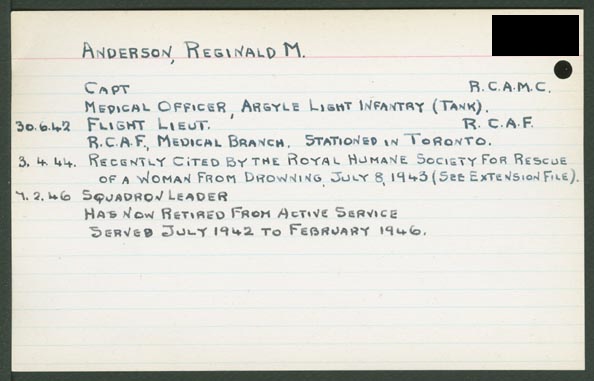 ANDERSON, REGINALD M.
CAPT R.C.A.M.C.
MEDICAL OFFICER, ARGYLE LIGHT INFANTRY (TANK).
30.6.42 FLIGHT LIEUT. R.C.A.F.
R.C.A.F., MEDICAL BRANCH. STATIONED IN TORONTO.
3.4.44. RECENTLY CITED BY THE ROYAL HUMANE SOCIETY FOR RESCUE
OF A WOMAN FROM DROWNING, JULY 8, 1943 (SEE EXTENSION FILE).
7.2.46 SQUADRON LEADER
HAS NOW RETIRED FROM ACTIVE SERVICE
SERVED JULY 1942 TO FEBRUARY 1946.